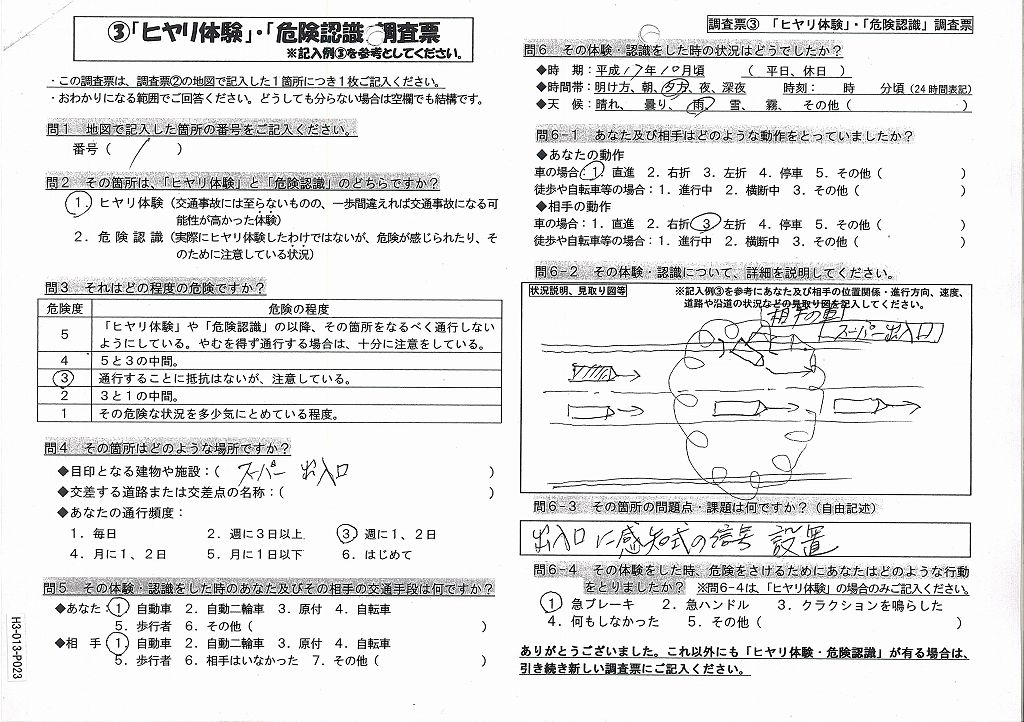 ③「ヒヤリ体験」・「危険認識」調査票
※記入例③を参考としてください。
・この調査票は、調査票②の地図で記入した1箇所につき1枚ご記入ください。
・おわかりになる範囲でご回答ください。どうしても分らない場合は空欄でも結構です。
問1 地図で記入した箇所の番号をご記入ください。
番号（ 1 ）
問2 その箇所は、「ヒヤリ体験」と「危険認識」のどちらですか？
1．ヒヤリ体験（交通事故には至らないものの、一歩間違えれば交通事故になる可
能性が高かった体験）
2．危険認識（実際にヒヤリ体験したわけではないが、危険が感じられたり、そ
のために注意している状況）
問3 それはどの程度の危険ですか？
危険度 危険の程度
5 「ヒヤリ体験」や「危険認識」の以降、その箇所をなるべく通行しない
ようにしている。やむを得ず通行する場合は、十分に注意をしている。
4 5と3の中間。
3 通行することに抵抗はないが、注意している。
2 3と1の中間。
1 その危険な状況を多少気にとめている程度。
問4 その箇所はどのような場所ですか？
◆目印となる建物や施設：（ スーパー 出入口 ）
◆交差する道路または交差点の名称：（ ）
◆あなたの通行頻度：
1．毎日 2．週に3日以上 3 週に1、2日
4．月に1、2日 5．月に1日以下 6．はじめて
問5 その体験・認識をした時のあなた及びその相手の交通手段は何ですか？
◆あなた：1 自動車 2．自動二輪車 3．原付 4．自転車
5．歩行者 6．その他（ ）
◆相 手：1 自動車 2．自動二輪車 3．原付 4．自転車
5．歩行者 6．相手はいなかった 7．その他（ ）
H3-013-P023
調査票③ 「ヒヤリ体験」・「危険認識」調査票
問6 その体験・認識をした時の状況はどうでしたか？
◆時 期：平成17年10月頃 （ 平日、休日 ）
◆時間帯：明け方、朝、夕方、夜、深夜 時刻： 時 分頃（24時間表記）
◆天 候：晴れ、 曇り、 雨、 雪、 霧、 その他（ ）
問6-1 あなた及び相手はどのような動作をとっていましたか？
◆あなたの動作
車の場合：1．直進 2．右折 3．左折 4．停車 5．その他（ ）
徒歩や自転車等の場合：1．進行中 2．横断中 3．その他（ ）
◆相手の動作
車の場合：1．直進 2．右折 3 左折 4．停車 5．その他（ ）
徒歩や自転車等の場合：1．進行中 2．横断中 3．その他（ ）
問6-2 その体験・認識について、詳細を説明してください。
状況説明、見取り図等 ※記入例③を参考にあなた及び相手の位置関係・進行方向、速度、
道路や沿道の状況などの見取り図を記入してください。
相手の車
スーパー出入口
問6-3 その箇所の問題点・課題は何ですか？（自由記述）
出入口に感知式の信号 設置
問6-4 その体験をした時、危険をさけるためにあなたはどのような行動
をとりましたか？ ※問6-4は、「ヒヤリ体験」の場合のみご記入ください。
1 急ブレーキ 2．急ハンドル 3．クラクションを鳴らした
4．何もしなかった 5．その他（ ）
ありがとうございました。これ以外にも「ヒヤリ体験・危険認識」が有る場合は、
引き続き新しい調査票にご記入ください。